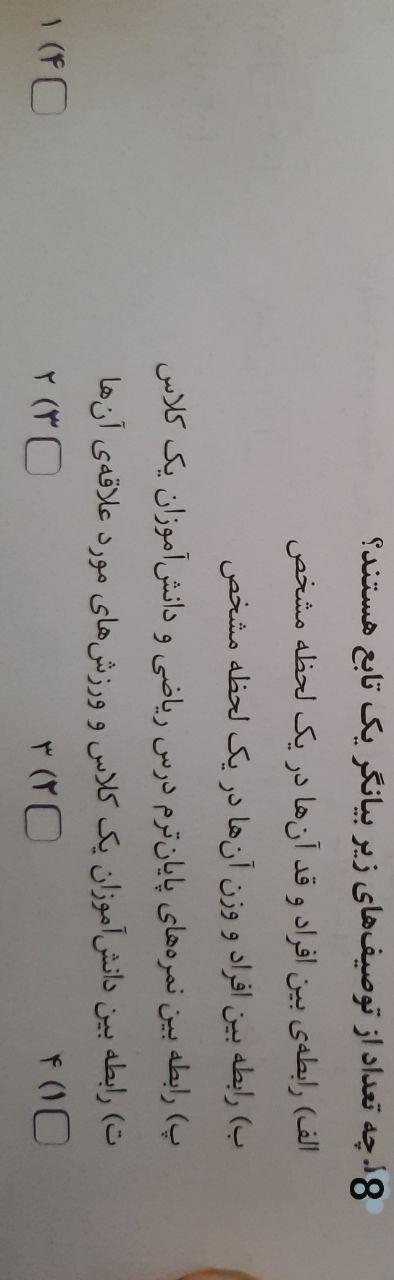 8. چه تعداد از توصیف‌های زیر بیانگر یک تابع هستند؟
الف) رابطه‌ی بین افراد و قد آن‌ها در یک لحظه مشخص
ب) رابطه بین افراد و وزن آن‌ها در یک لحظه مشخص
پ) رابطه بین نمره‌های پایان‌ترم درس ریاضی و دانش‌آموزان یک کلاس
ت) رابطه بین دانش‌آموزان یک کلاس و ورزش‌های مورد علاقه‌ی آن‌ها
۱) ۴ ۲) ۳ ۳) ۲ ۴) ۱